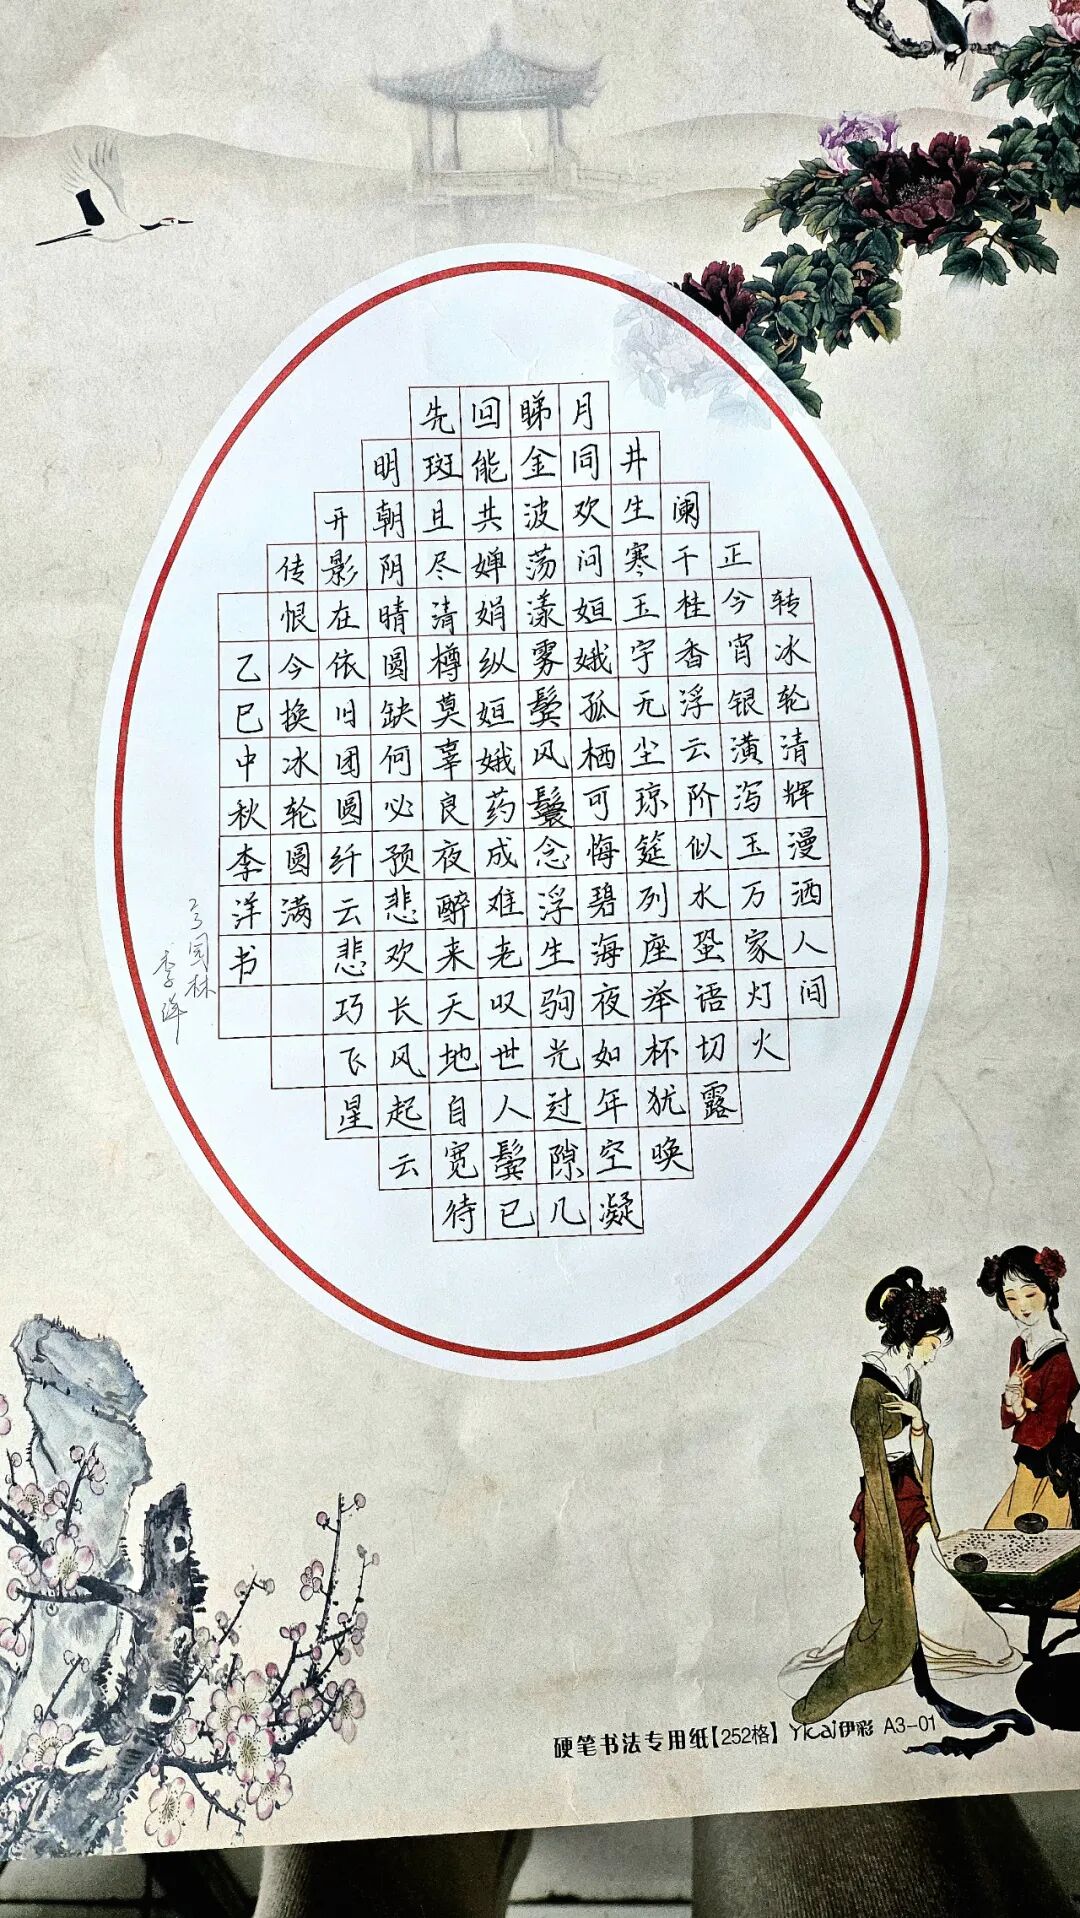 转冰轮清辉漫洒人间
正今宵银潢泻玉万家灯火
阑干桂香浮云阶似水蛩语切露
井生寒玉宇无尘琼筵列座举杯犹唤
月同欢问姮娥孤栖可悔碧海夜如年空凝
睇金波荡漾雾鬓风鬟念浮生驹光过隙几
回能共婵娟纵姮娥药成难老叹世人鬓已
先斑且尽清樽莫辜良夜醉来天地自宽待
明朝阴晴圆缺何必预悲欢长风起云
开影在依旧团圆纤云悲巧飞星
传恨今换冰轮圆满
乙巳中秋李洋书
23园林
李洋
硬笔书法专用纸【252格】 Yicai伊彩 A3-01